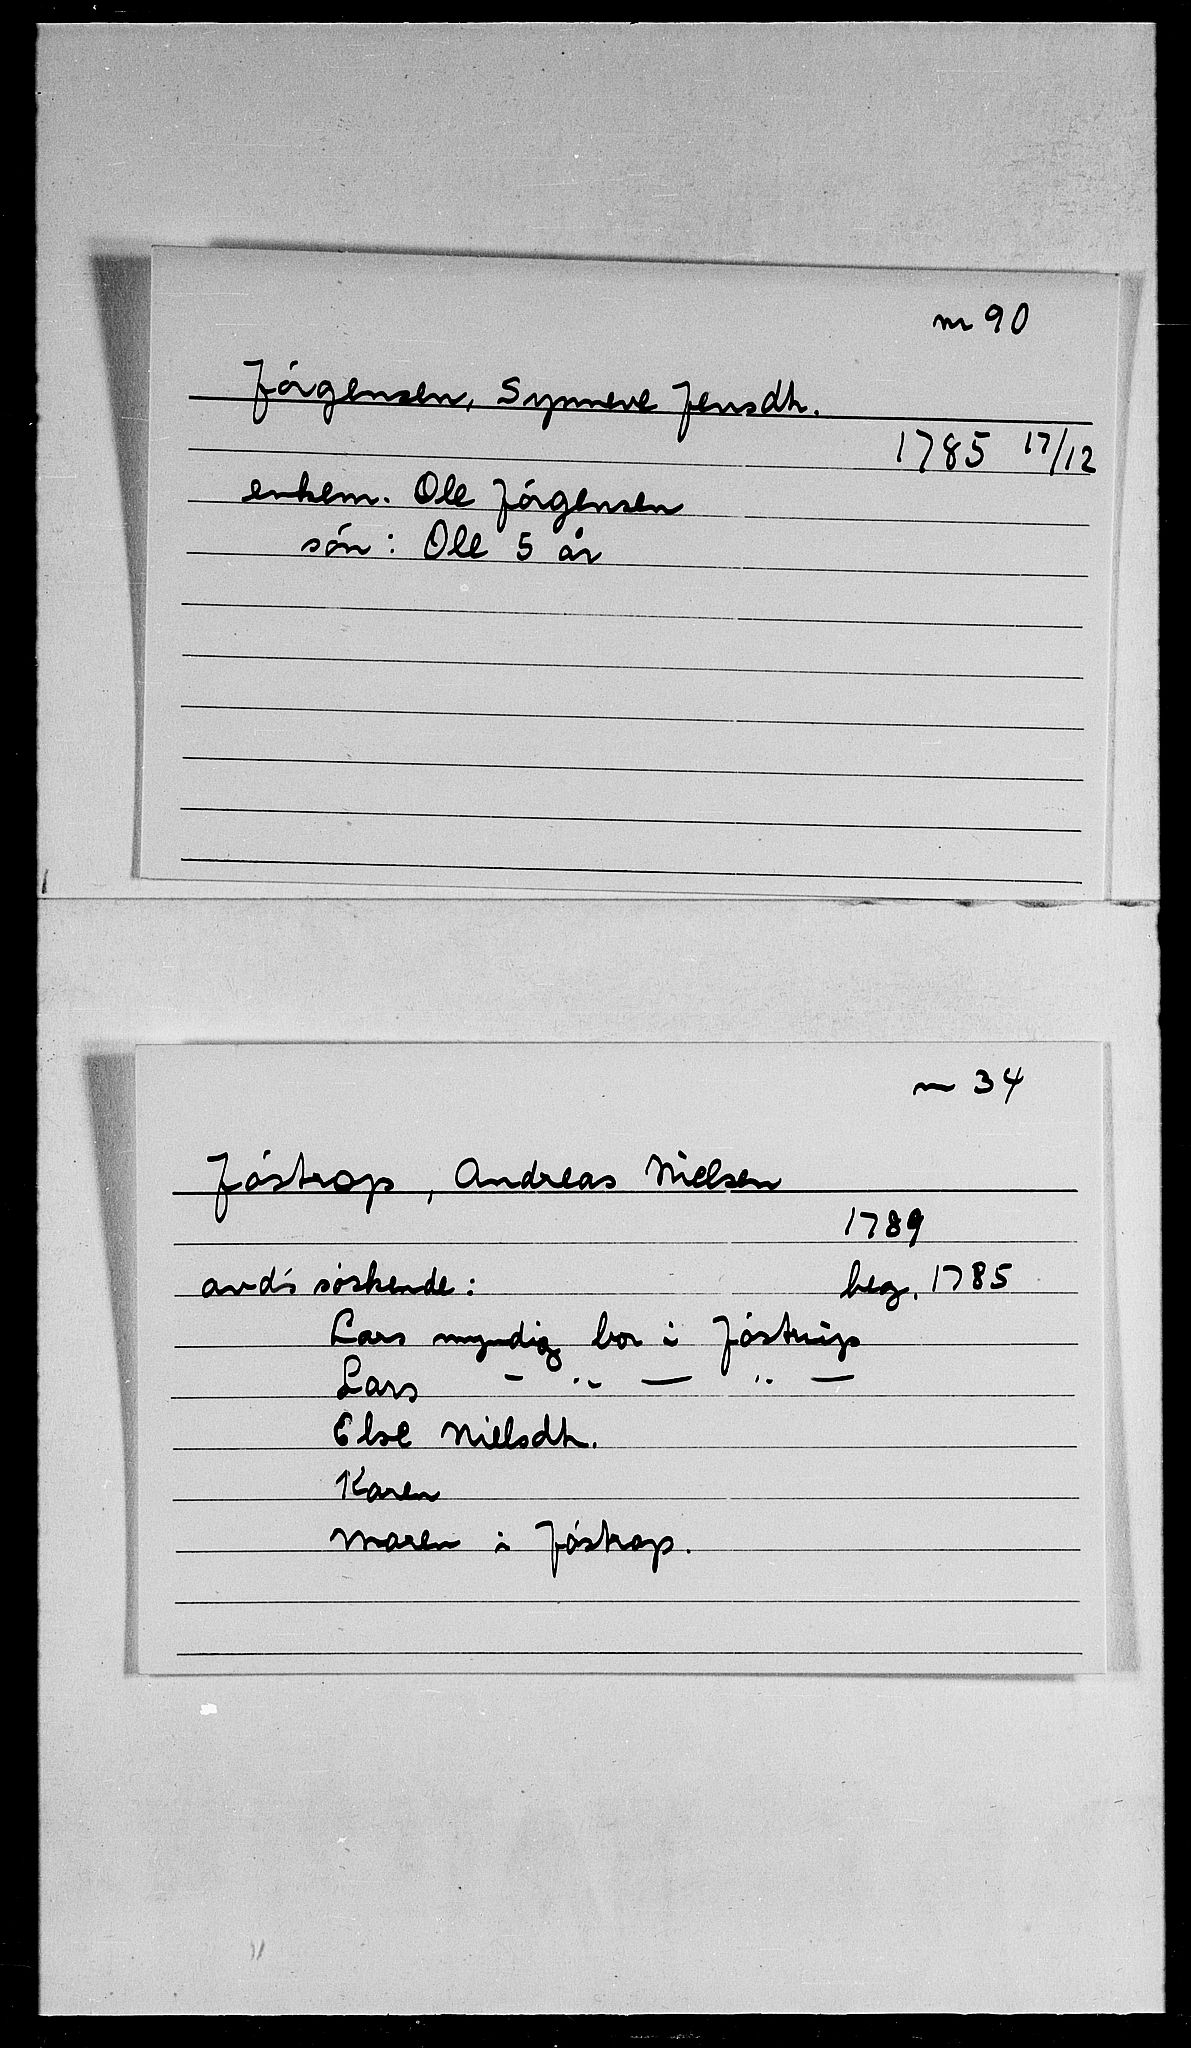 nr 90
Jörgensen, Synneve Jensdtr.
1785 17/12
enkem. Ole Jörgensen
sön: Ole 5 år
nr 34
Jöstrop, Andreas Nielsen
1789
avd's söskende: beg. 1785
Lars myndig bor i Jöstrup
Lars - " — " —
Else Nielsdtr.
Karen
Maren i Jöstrop.